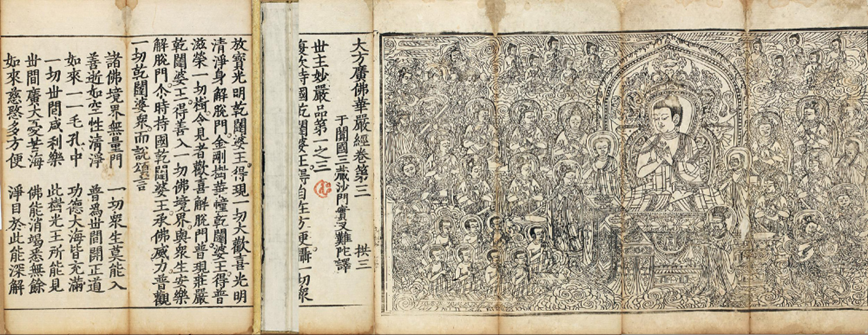 大方廣佛華嚴經卷第三 拱三
于闐國三藏沙門實叉難陀譯
世主妙嚴品第一之三
復次持國乾闥婆王得自在方便攝一切衆
放寶光明乾闥婆王得現一切大歡喜光明
清淨身解脫門金剛樹華幢乾闥婆王得普
滋榮一切樹令見者歡喜解脫門普現莊嚴
乾闥婆王得善入一切佛境界與衆生安樂
解脫門尒時持國乾闥婆王承佛威力普觀
一切乾闥婆衆而說頌言
諸佛境界無量門 一切衆生莫能入
善逝如空性清淨 普為世間開正道
如來一一毛孔中 功德大海皆充滿
一切世間咸利樂 此樹光王所能見
世間廣大憂苦海 佛能消竭悉無餘
如來慈愍多方便 淨目於此能深解